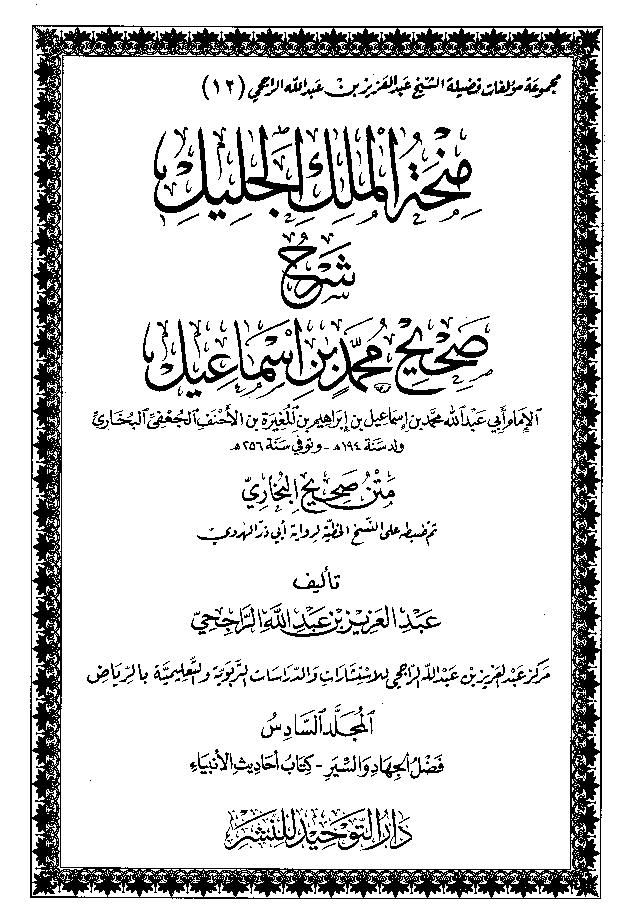 مجموعة مؤلفات فضيلة الشيخ عبد العزيز بن عبد الله الراجحي (١٢)
منحة الملك الجليل
شرح
صحيح محمد بن إسماعيل
الإمام أبي عبد الله محمد بن إسماعيل بن إبراهيم بن المغيرة بن الأحنف الجعفي البخاري
ولد سنة ١٩٤هـ - وتوفي سنة ٢٥٦هـ
متن صحيح البخاري
تم ضبطه على النسخ الخطية لرواية أبي ذر الهروي
تأليف
عبد العزيز بن عبد الله الراجحي
مركز عبد العزيز بن عبد الله الراجحي للاستشارات والدراسات التربوية والتعليمية بالرياض
المجلد السادس
فضل الجهاد والسير - كتاب أحاديث الأنبياء
دار التوحيد للنشر